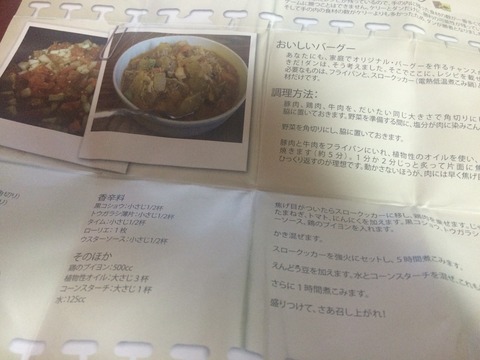 おいしいバーグー
あなたにも、家庭でオリジナル・バーグーを作るチャンス
きだ！ダンは、そう考えました。そこでここに、レシピを載せ
必要なものは、フライパンと、スロークッカー（電熱低温煮こみ鍋
材だけです。
調理方法：
豚肉、鶏肉、牛肉を、だいたい同じ大きさで角切りに
脇に置いておきます。野菜を準備する間に、塩分が肉に染みこん
野菜を角切りにし、脇に置いておきます。
豚肉と牛肉をフライパンにいれ、植物性のオイルを使い、
焼きます（約５分）。１分か２分じっと炙って片面に焦
ひっくり返すのが理想です。動かさないほうが、肉には早く焦げ目
焦げ目がついたらスロークッカーに移し、鶏肉を乗せます。じ
たまねぎ、トマト、にんにくを加えます。黒コショウ、トウガラシ
ーソース、鶏のブイヨンを入れます。
かき混ぜます。
スロークッカーを強火にセットし、５時間煮こみます。
えんどろ豆を加えます。水とコーンスターチを混ぜ、これも
さらに１時間煮こみます。
盛りつけて、さあ召し上がれ！
香辛料
黒コショウ：小さじ1/2杯
トウガラシ薄片：小さじ1/2杯
タイム：小さじ1/2杯
ローリエ：１枚
ウスターソース：小さじ1/2杯
そのほか
鶏のブイヨン：500cc
植物性オイル：大さじ３杯
コーンスターチ：大さじ１杯
水：125cc